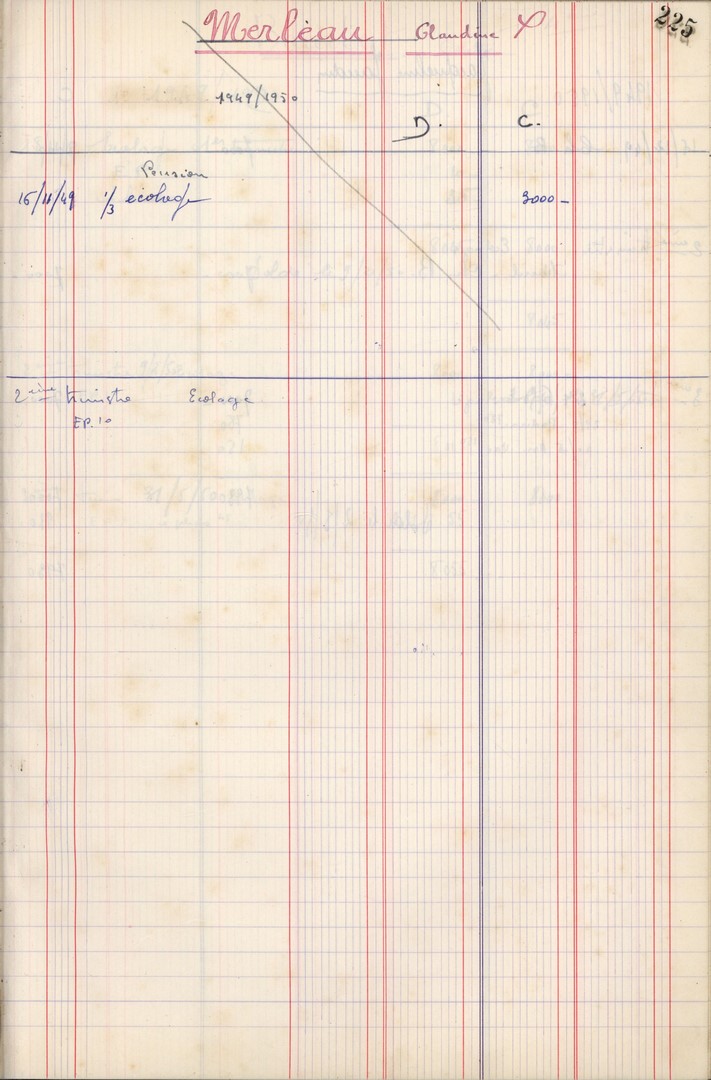 225
Merleau Claudine
1949/1950
D. C.
Pension
15/11/49 1/3 écolage 3000 -
2ème trimstre Ecolage
EP. 10